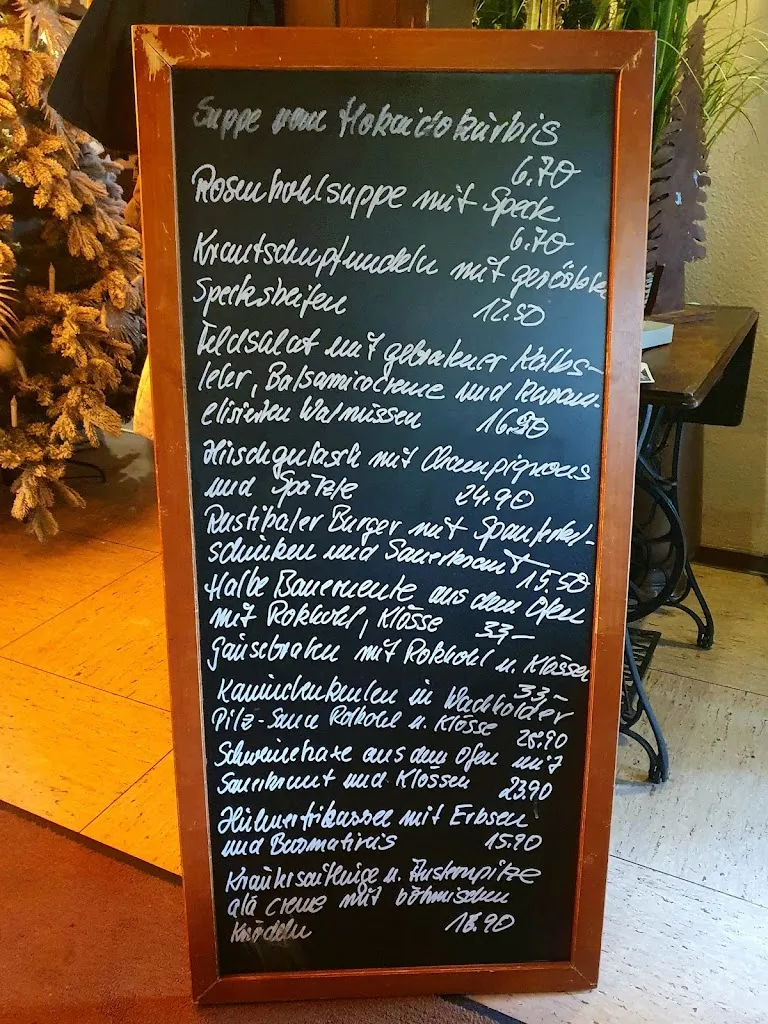 Suppe vom Hokaidokürbis
6.70
Rosenkohlsuppe mit Speck
6.70
Krautschupfnudeln mit gerösteten
Speckstreifen 12.50
Feldsalat mit gebratener Kalbs-
leber, Balsamicocreme und karam-
elisierten Walnüssen 16.90
Hirschgulasch mit Champignons
und Spätzle 24.90
Rustikaler Burger mit Spanferkel-
schinken und Sauerkraut 15.50
Halbe Bauernente aus dem Ofen
mit Rotkohl, Klösse 33,-
Gänsebraten mit Rotkohl u. Klössen
33,-
Kaninchenkeulen in Wacholder
Pilz-Sauce Rotkohl u. Klösse 28.90
Schweinehaxe aus dem Ofen mit
Sauerkraut und Klössen 23.90
Hühnerfrikassee mit Erbsen
und Basmatireis 15.90
Kräutersaitlinge u. Austernpilze
alá creme mit böhmischen
Knödeln 18.90